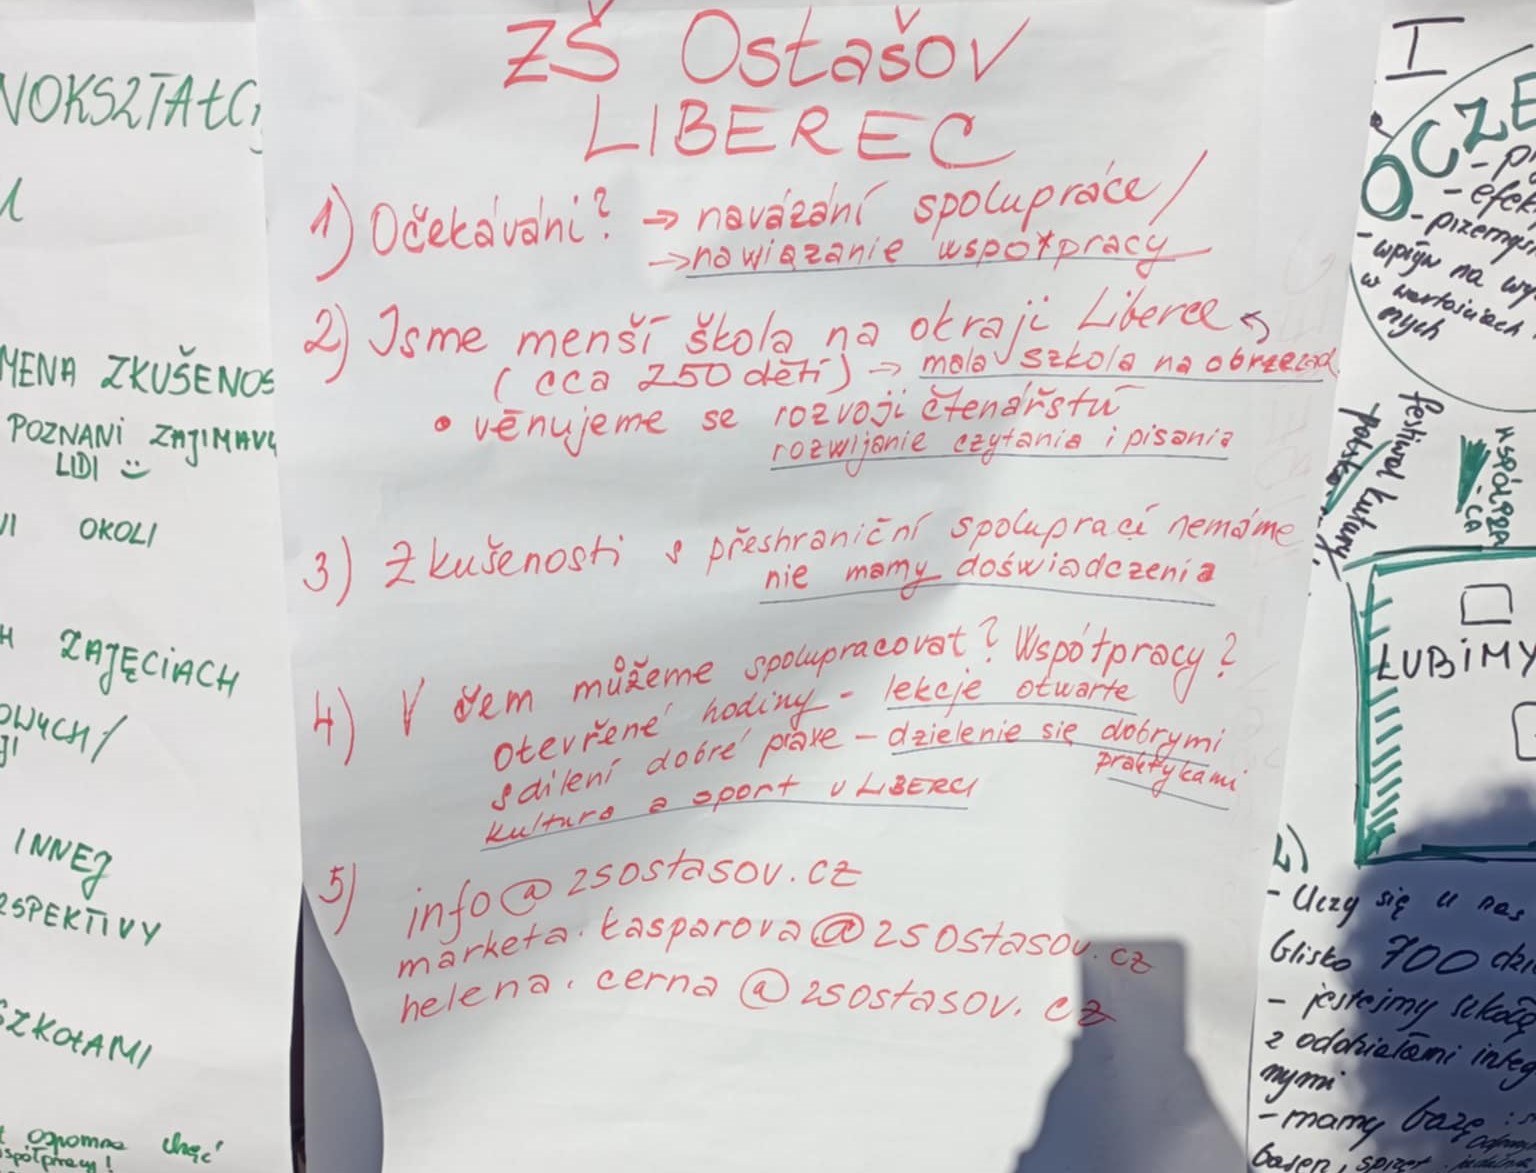 ZŠ Ostašov
LIBEREC
1) Očekávání? → navázání spolupráce/
→ nawiązanie współpracy
2) Jsme menší škola na okraji Liberce
(cca 250 dětí) → mała szkoła na obrzeżach
• věnujeme se rozvoji čtenářství
rozwijanie czytania i pisania
3) Zkušenosti s přeshraniční spoluprací nemáme
nie mamy doświadczenia
4) V čem můžeme spolupracovat? Współpracy?
otevřené hodiny - lekcje otwarte
sdílení dobré praxe - dzielenie się dobrymi
praktykami
kultura a sport v LIBERCI
5) info@zsostasov.cz
marketa.kasparova@zsostasov.cz
helena.cerna@zsostasov.cz
ZKUŠENOS
POZNANI ZAJIMAVÝ
LIDI
OKOLI
ZAJĘCIACH
INNEJ
SZKOŁAMI
ogromna chęć
współpracy!
I
OCZE
- wpływ na
w wartościach
nych
festiwal kultury
LUBIMY
- Uczy się u nas
blisko 700
- jesteśmy szkołą
z oddziałami integ
nymi
- mamy bazę:
basen,